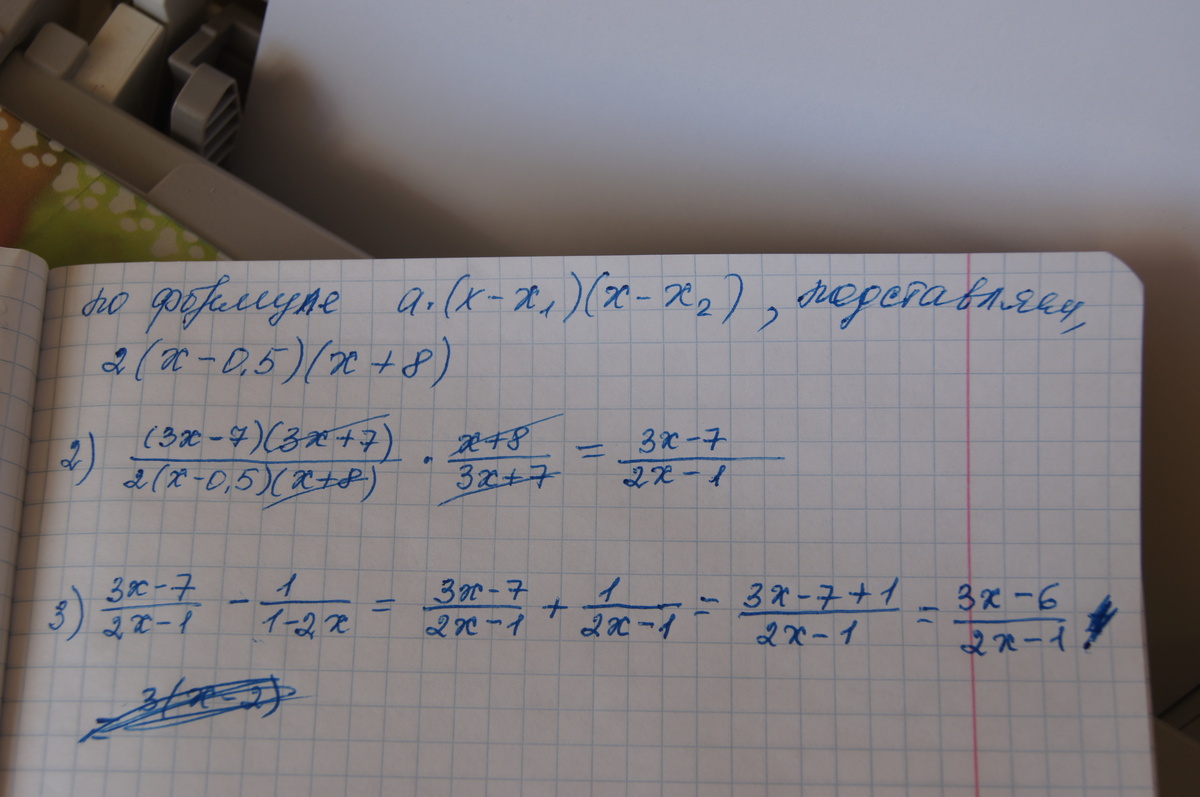 по формуле a·(x-x₁)(x-x₂), подставляем,
2(x-0,5)(x+8)
2) (3x-7)(3x+7)/2(x-0,5)(x+8) · x+8/3x+7 = 3x-7/2x-1
3) 3x-7/2x-1 - 1/1-2x = 3x-7/2x-1 + 1/2x-1 = 3x-7+1/2x-1 = 3x-6/2x-1
= 3(x-2)